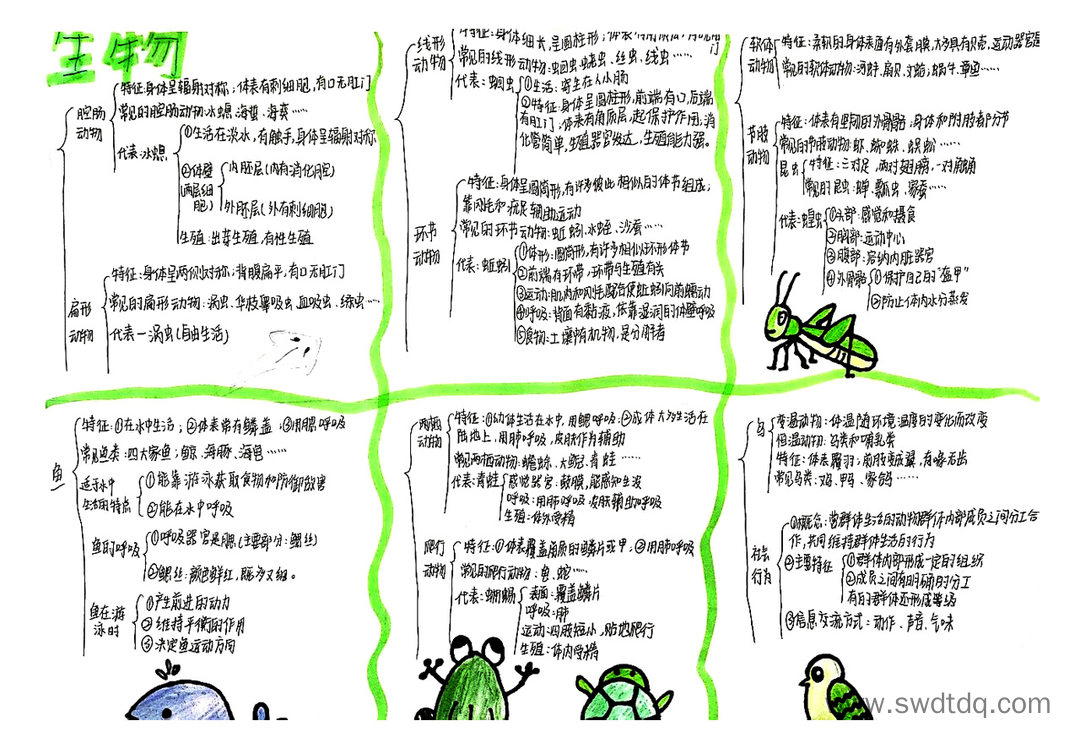 生物
腔肠动物
特征：身体呈辐射对称；体表有刺细胞，有口无肛门
常见的腔肠动物：水螅、海蜇、海葵……
代表：水螅
①生活在淡水，有触手，身体呈辐射对称
②体壁（两层细胞）
内胚层（内有消化腔）
外胚层（外有刺细胞）
生殖：出芽生殖，有性生殖
扁形动物
特征：身体呈两侧对称；背腹扁平，有口无肛门
常见的扁形动物：涡虫、华枝睾吸虫、血吸虫、绦虫……
代表－涡虫（自由生活）
线形动物
特征：身体细长，呈圆柱形；体表有角质层；有口有肛门
常见的线形动物：蛔虫、蛲虫、丝虫、线虫……
代表：蛔虫
①生活：寄生在人小肠
②特征：身体呈圆柱形，前端有口，后端
有肛门；体表有角质层，起保护作用；消
化管简单，生殖器官发达，生殖能力强。
环节动物
特征：身体呈圆筒形，有许多彼此相似的体节组成；
靠刚毛和疣足辅助运动
常见的环节动物：蚯蚓、水蛭、沙蚕……
代表：蚯蚓
①体形：圆筒形，有许多相似环形体节
②前端有环带，环带与生殖有关
③运动：肌肉和刚毛配合使蚯蚓向前蠕动
④呼吸：背面有黏液，依靠湿润的体壁呼吸
⑤食物：土壤中有机物，是分解者
软体动物
特征：柔软的身体表面有外套膜，大多具有贝壳，运动器官是
常见的软体动物：河蚌、扇贝、文蛤；蜗牛、章鱼……
节肢动物
特征：体表有坚韧的外骨骼；身体和附肢都分节
常见的节肢动物：虾、蜘蛛、蜈蚣……
昆虫
特征：三对足，两对翅膀，一对触角
常见的昆虫：蝉、瓢虫、家蚕……
代表：蝗虫
①头部：感觉和摄食
②胸部：运动中心
③腹部：容纳内脏器官
④外骨骼
①保护自己的“盔甲”
②防止体内水分蒸发
鱼
特征：①在水中生活；②体表常有鳞片盖；③用鳃呼吸
常见鱼类：四大家鱼；鲸、海豚、海龟……
适于水中生活的特点
①能靠游泳获取食物和防御敌害
②能在水中呼吸
鱼的呼吸
①呼吸器官是鳃（主要部分：鳃丝）
②鳃丝：颜色鲜红，既多又细。
鱼在游泳时
①产生前进的动力
②维持平衡的作用
③决定鱼运动方向
两栖动物
特征：①幼体生活在水中，用鳃呼吸；②成体大多生活在
陆地上，用肺呼吸，皮肤作为辅助
常见两栖动物：蟾蜍、大鲵、青蛙……
代表：青蛙
感觉器官：鼓膜，能感知声波
呼吸：用肺呼吸，皮肤辅助呼吸
生殖：体外受精
爬行动物
特征：①体表覆盖角质的鳞片或甲，②用肺呼吸
常见的爬行动物：龟、蛇……
代表：蜥蜴
表面：覆盖鳞片
呼吸：肺
运动：四肢短小，贴地爬行
生殖：体内受精
鸟
变温动物：体温随环境温度的变化而改变
恒温动物：鸟类和哺乳类
特征：体表覆羽；前肢变成翼，有喙无齿
常见鸟类：鸡、鸭、家鸽……
社会行为
①概念：营群体生活的动物群体内部成员之间分工合
作，共同维持群体生活的行为
②主要特征
①群体内部形成一定的组织
②成员之间有明确的分工
有的群体还形成等级
③信息交流方式：动作、声音、气味
www.swdtdq.com